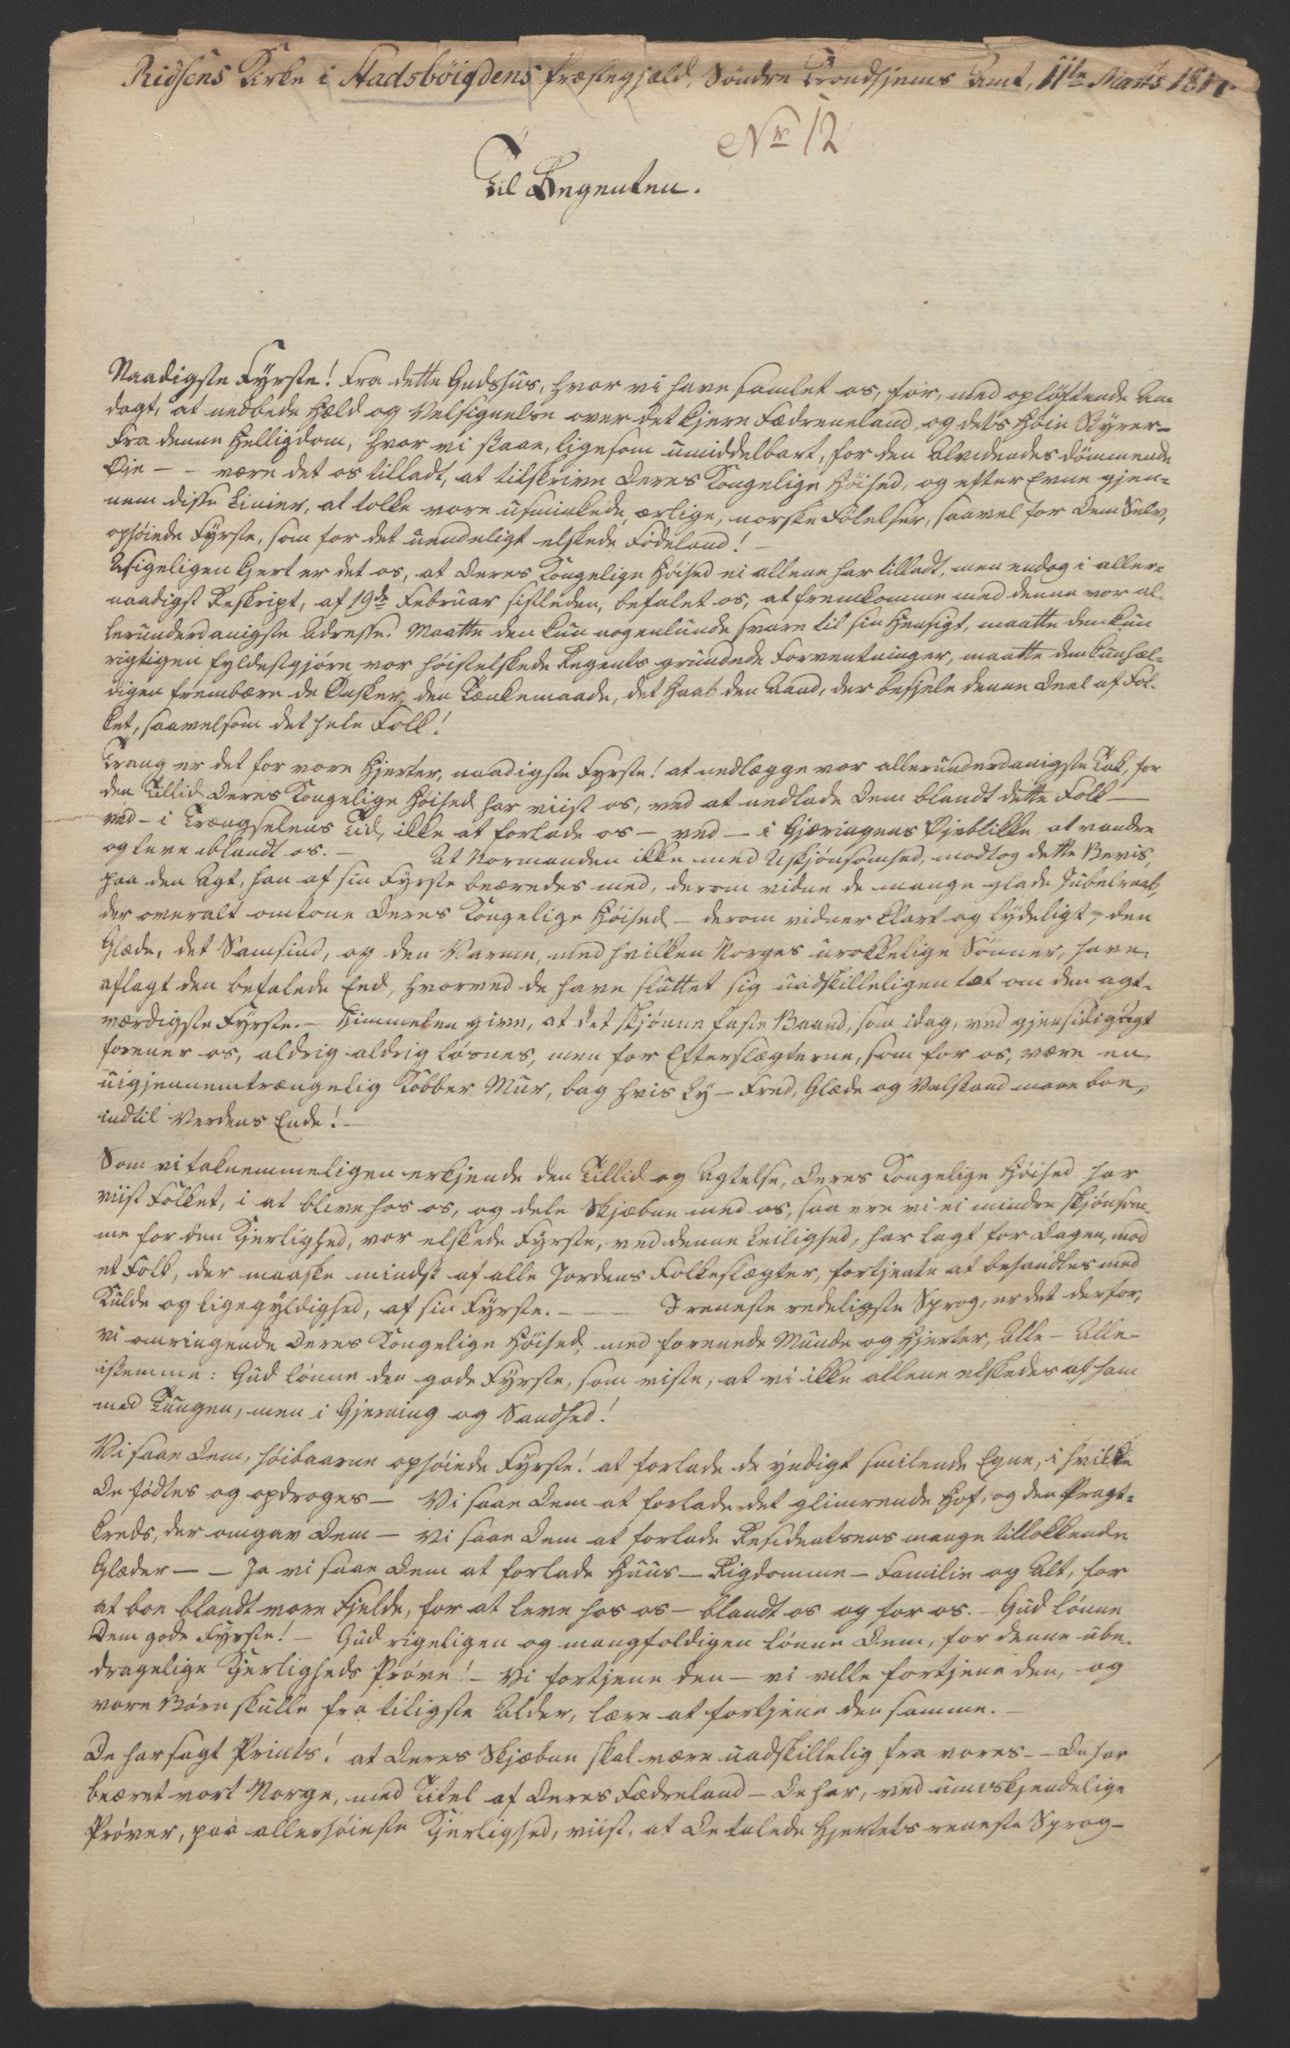 Ridsens Kirke i Stadsböigdens Præstegjæld, Söndre Trondhjems Amt, 11te Marts 1814
No 12
Til Regenten.
Naadigste Fyrste! Fra dette Gudshus, hvor vi have samlet os, for, med opløftende An-
dagt, at nedbede Held og Velsignelse over det kjere Fædreneland, og dets Høie Styrer-
Fra denne Helligdom, hvor vi staae, ligesom umiddelbart, for den Alvidendes dömmende
Øie - - være det os tilladt, at tilskrive Deres Kongelige Höihed, og efter Evne gjen-
nem disse Linier, at tolke vore usminkede, ærlige, norske Fölelser, saavel for Dem Selv,
ophöiede Fyrste, som for det uendeligt elskede Födeland! -
Usigeligen kjert er det os, at Deres Kongelige Höihed ei allene har tilladt, men endog i aller-
naadigst Reskript, af 19de Februar sistleden, befalet os, at fremkomme med denne vor al-
lerunderdanigste Adresse. Maatte den kun nogenlunde svare til sin Hensigt, maatte den kun
rigtigen fyldestgjøre vor höistelskede Regents grundede Forventninger, maatte den kun hæl-
digen frembære de Ønsker, den Tænkemaade, det Haab den Aand, der besjele denne Deel af Fol-
ket, saavelsom det hele Folk!
Trang er det for vore Hjerter, naadigste Fyrste! at nedlægge vor allerunderdanigste Tak, for
den Tillid Deres Kongelige Höihed har viist os, ved at nedlade Dem blandt dette Folk —
ved - i Trængselens Tid, ikke at forlade os - ved - i Gjæringens Øieblikke, at vandre
og leve iblandt os. - At Normanden ikke med Uskjönsomhed, modtog dette Beviis,
paa den Agt, han af sin Fyrste beæredes med, derom vidne de mange glade Jubelraab,
der overalt omtone Deres Kongelige Höihed - derom vidner klart og lydeligt, den
Glæde, det Samsind, og den Varme, med hvilken Norges urokkelige Sönner, have
aflagt den befalede Eed, hvorved de have sluttet sig uadskilleligen tæt om den agt-
værdigste Fyrste. - Himmelen give, at det skjönne faste Baand, som idag, ved gjensidig Agt
forener os, aldrig aldrig løsnes, men for Efterslægterne, som for os, være en
uigjennemtrængelig Kobber Mur, bag hvis Ly - Fred, Glæde og Velstand maae boe,
indtil Verdens Ende! -
Som vi taknemmeligen erkjende den Tillid og Agtelse, Deres Kongelige Höihed har
viist Folket, i at blive hos os, og dele Skjæbne med os, saa ere vi ei mindre skjönsom-
me for den Kjerlighed, vor elskede Fyrste, ved denne Leilighed, har lagt for Dagen, mod
et Folk, der maaske mindst af alle Jordens Folkeslægter, fortjente at behandles med
Kulde og Ligegyldighed, af sin Fyrste. - - - I reneste redeligste Sprog, er det derfor,
vi omringende Deres Kongelige Höihed, med forenede Munde og Hjerter, Alle - Alle -
istemme: Gud lönne den gode Fyrste, som viste, at vi ikke allene elskedes af ham
med Tungen, men i Gjerning og Sandhed!
Vi saae Dem, höibaarne ophöiede Fyrste! at forlade de yndigt smilende Egne, i hvilke
De fødtes og opdroges - Vi saae Dem at forlade det glimrende Hof, og den Pragt-
kreds, der omgav Dem - Vi saae Dem at forlade Residentsens mange tillokkende
Glæder - - Ja vi saae Dem at forlade Huus - Rigdomme - Familie og Alt, for
at boe blandt vore Fjelde, for at leve hos os - blandt os og for os. - Gud lönne
Dem gode Fyrste! - Gud rigeligen og mangfoldigen lönne Dem, for denne ube-
dragelige Kjerligheds Pröve! - Vi fortjene den - vi ville fortjene den, og
vore Børn skulle fra tiligste Alder, lære at fortjene den samme. -
De har sagt Prints! at Deres Skjæbne skal være uadskillelig fra vores - - De har
beæret vort Norge, med Titel af Deres Fædreland - De har, ved umiskjendelige
Pröver, paa allerhöieste Kjerlighed, viist, at De talede Hjertets reneste Sprog -